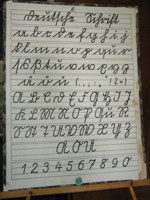 Deutsche Schrift
a b c d e f g h i j
k l m n o p q u r
s ß t u v w x y z
ä ö ü
A B C D E F G H I J
K L M N O P Qu R
S T U V W X Y Z
Ä Ö Ü
1 2 3 4 5 6 7 8 9 0